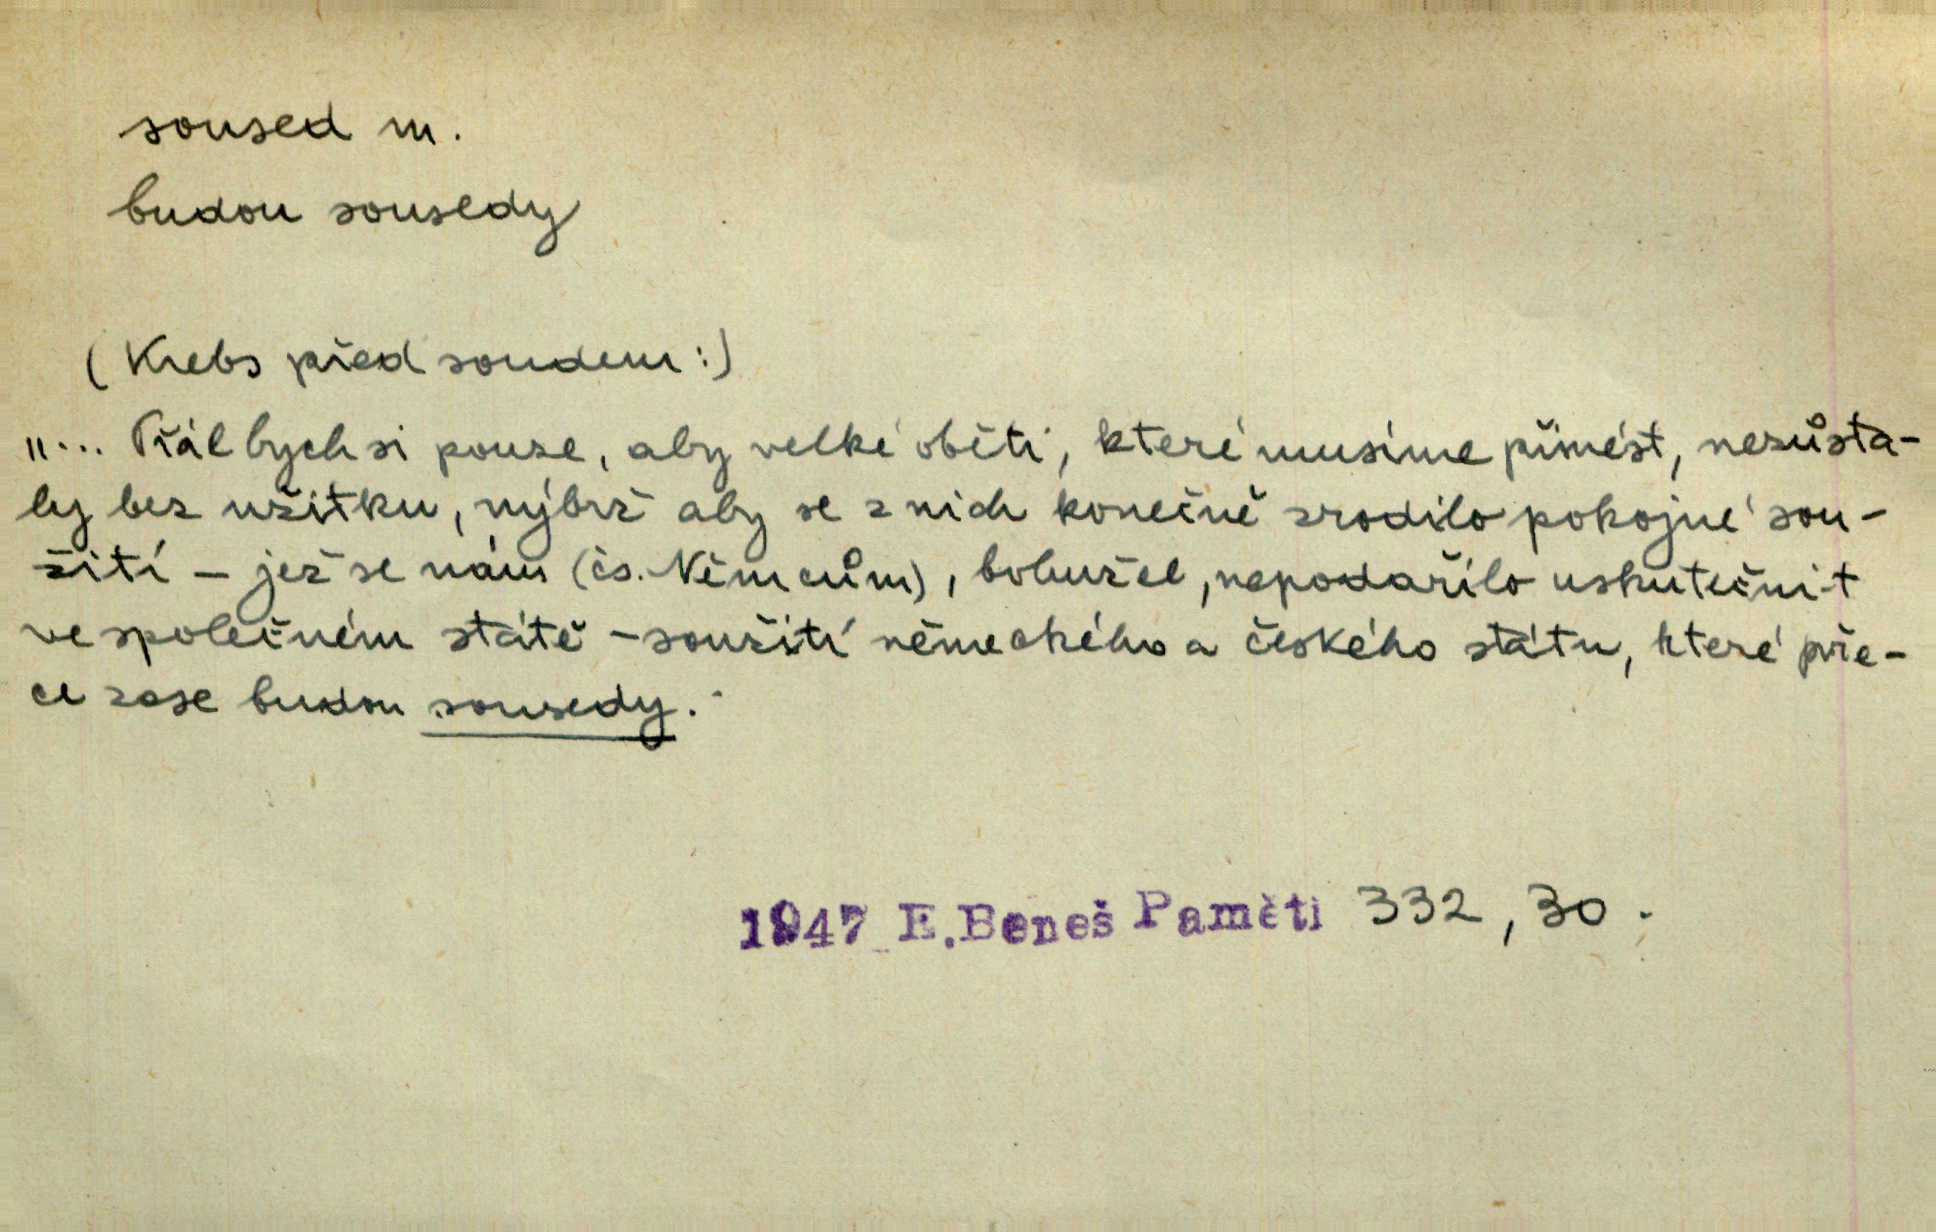 soused m.
budou sousedy
(Krebs před soudem:)
„... Přál bych si pouze, aby velké oběti, které musíme přinést, nezůsta-
ly bez užitku, nýbrž aby se z nich konečně zrodilo pokojné sou-
žití – jež se nám (čs. Němcům), bohužel, nepodařilo uskutečnit
ve společném státě – soužití německého a českého státu, které pře-
ce zase budou sousedy.
1947 E. Beneš Paměti 332, 30.